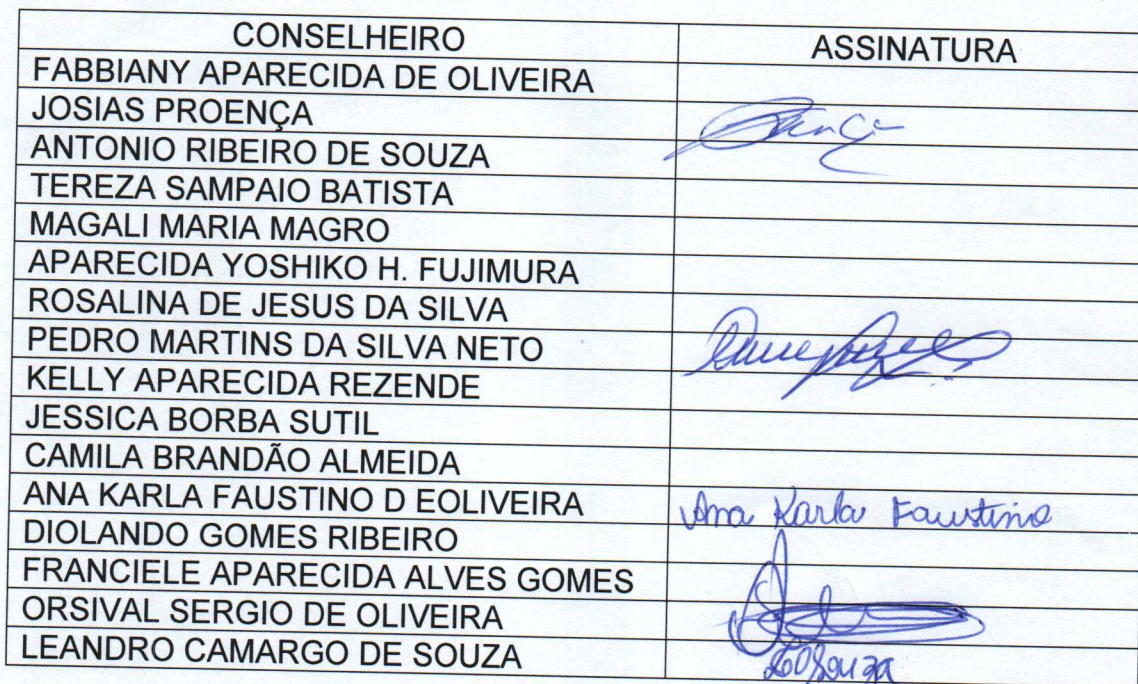 CONSELHEIRO ASSINATURA
FABBIANY APARECIDA DE OLIVEIRA
JOSIAS PROENÇA
ANTONIO RIBEIRO DE SOUZA
TEREZA SAMPAIO BATISTA
MAGALI MARIA MAGRO
APARECIDA YOSHIKO H. FUJIMURA
ROSALINA DE JESUS DA SILVA
PEDRO MARTINS DA SILVA NETO
KELLY APARECIDA REZENDE
JESSICA BORBA SUTIL
CAMILA BRANDÃO ALMEIDA
ANA KARLA FAUSTINO D EOLIVEIRA Ana Karla Faustino
DIOLANDO GOMES RIBEIRO
FRANCIELE APARECIDA ALVES GOMES
ORSIVAL SERGIO DE OLIVEIRA
LEANDRO CAMARGO DE SOUZA